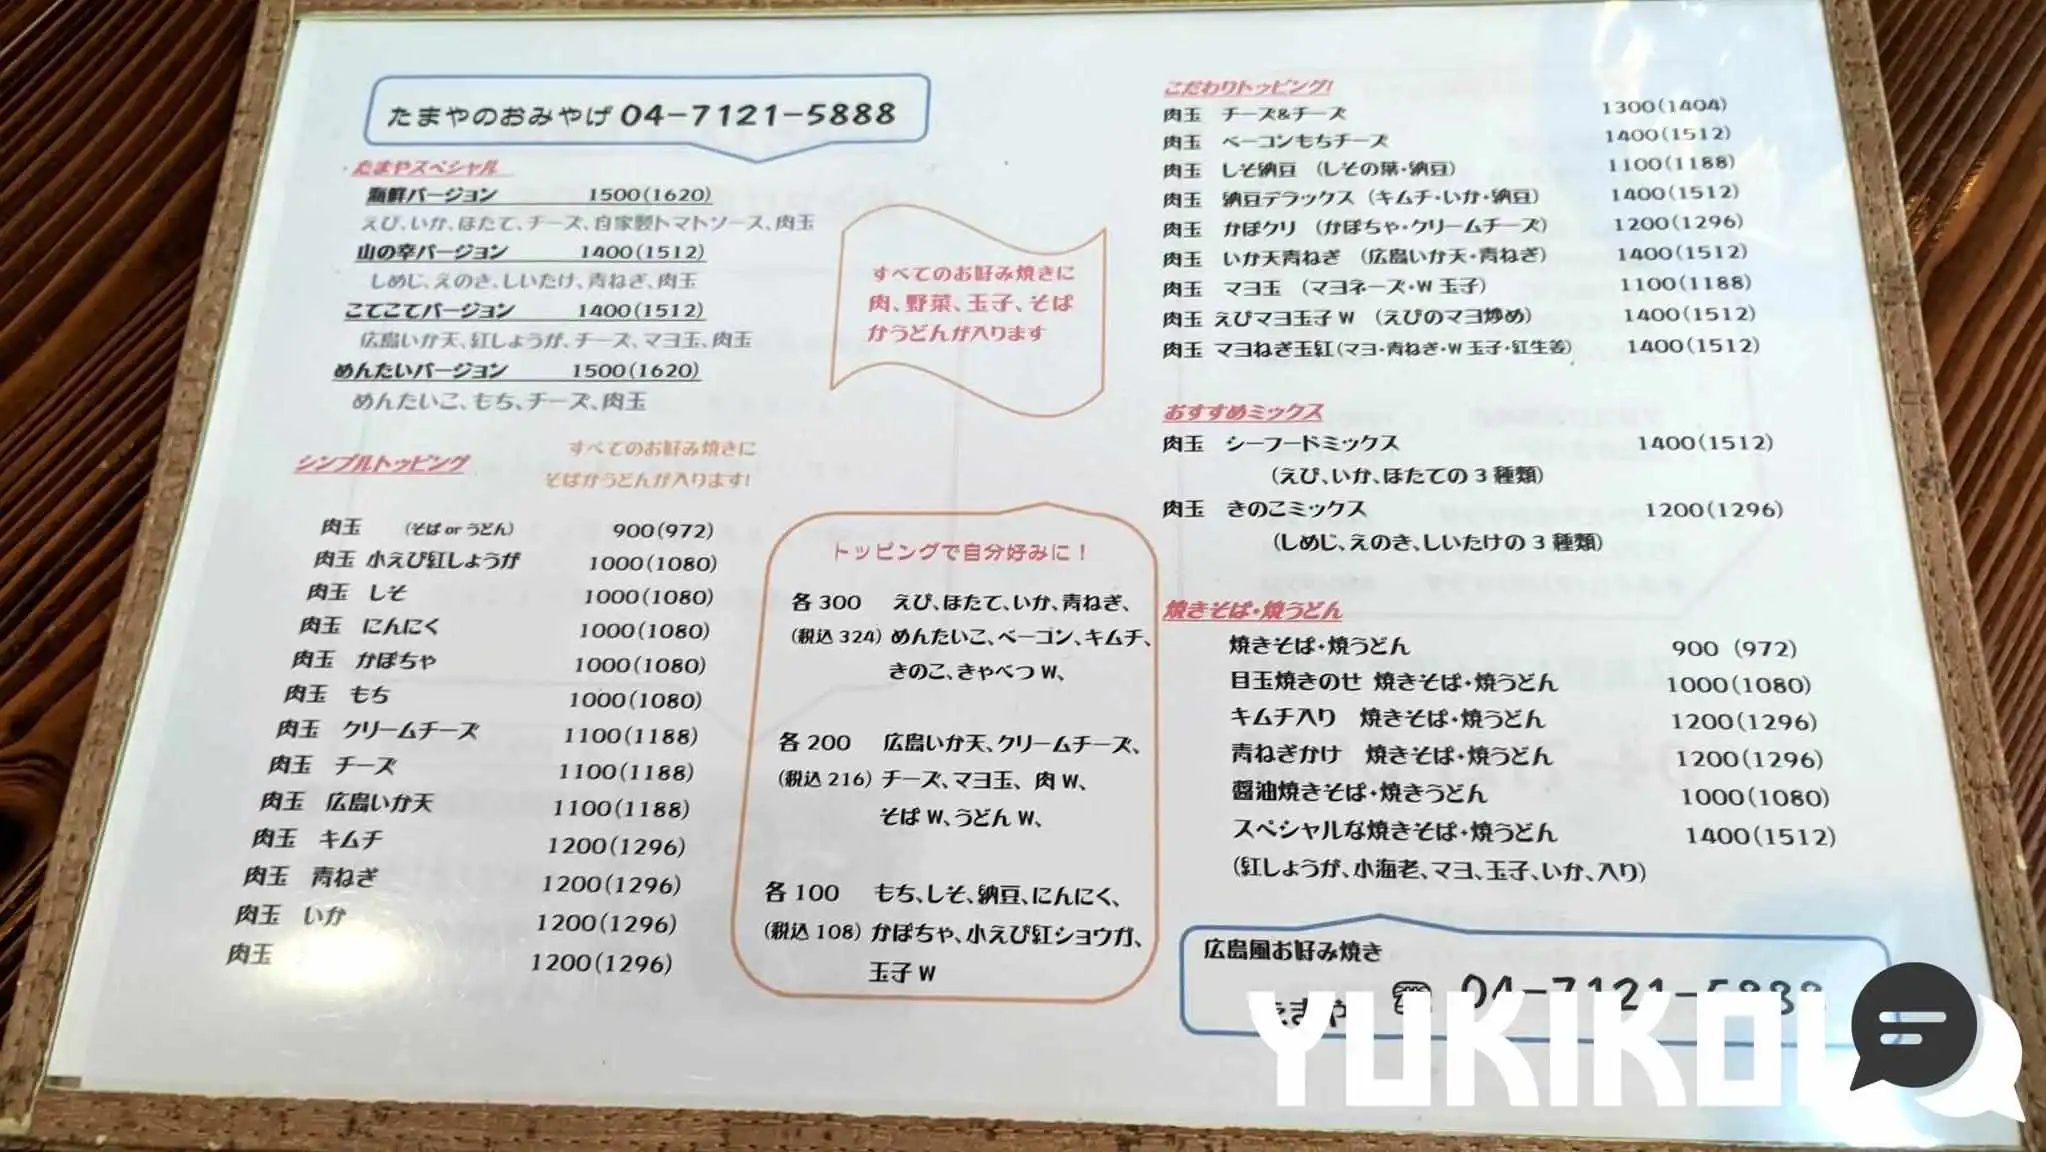 たまやのおみやげ 04-7121-5888
たまやスペシャル
海鮮バージョン 1500(1620)
えび、いか、ほたて、チーズ、自家製トマトソース、肉玉
山の幸バージョン 1400(1512)
しめじ、えのき、しいたけ、青ねぎ、肉玉
こてこてバージョン 1400(1512)
広島いか天、紅しょうが、チーズ、マヨ玉、肉玉
めんたいバージョン 1500(1620)
めんたいこ、もち、チーズ、肉玉
すべてのお好み焼きに
肉、野菜、玉子、そば
かうどんが入ります
シンプルトッピング
すべてのお好み焼きに
そばかうどんが入ります!
肉玉 (そば or うどん) 900(972)
肉玉 小えび紅しょうが 1000(1080)
肉玉 しそ 1000(1080)
肉玉 にんにく 1000(1080)
肉玉 かぼちゃ 1000(1080)
肉玉 もち 1000(1080)
肉玉 クリームチーズ 1100(1188)
肉玉 チーズ 1100(1188)
肉玉 広島いか天 1100(1188)
肉玉 キムチ 1200(1296)
肉玉 青ねぎ 1200(1296)
肉玉 いか 1200(1296)
肉玉 1200(1296)
トッピングで自分好みに！
各300 えび、ほたて、いか、青ねぎ、
(税込 324) めんたいこ、ベーコン、キムチ、
きのこ、きゃべつ W、
各200 広島いか天、クリームチーズ、
(税込 216) チーズ、マヨ玉、肉 W、
そば W、うどん W、
各100 もち、しそ、納豆、にんにく、
(税込 108) かぼちゃ、小えび紅ショウガ、
玉子 W
こだわりトッピング!
肉玉 チーズ&チーズ 1300(1404)
肉玉 ベーコンもちチーズ 1400(1512)
肉玉 しそ納豆 (しその葉・納豆) 1100(1188)
肉玉 納豆デラックス (キムチ・いか・納豆) 1400(1512)
肉玉 かぼクリ (かぼちゃ・クリームチーズ) 1200(1296)
肉玉 いか天青ねぎ (広島いか天・青ねぎ) 1400(1512)
肉玉 マヨ玉 (マヨネーズ・W 玉子) 1100(1188)
肉玉 えびマヨ玉子 W (えびのマヨ炒め) 1400(1512)
肉玉 マヨねぎ玉紅(マヨ・青ねぎ・W 玉子・紅生姜) 1400(1512)
おすすめミックス
肉玉 シーフードミックス 1400(1512)
(えび、いか、ほたての 3 種類)
肉玉 きのこミックス 1200(1296)
(しめじ、えのき、しいたけの 3 種類)
焼きそば・焼うどん
焼きそば・焼うどん 900 (972)
目玉焼きのせ 焼きそば・焼うどん 1000(1080)
キムチ入り 焼きそば・焼うどん 1200(1296)
青ねぎかけ 焼きそば・焼うどん 1200(1296)
醤油焼きそば・焼きうどん 1000(1080)
スペシャルな焼きそば・焼うどん 1400(1512)
(紅しょうが、小海老、マヨ、玉子、いか、入り)
広島風お好み焼き
たまや ☎ 04-7121-5888
YUKIKOL